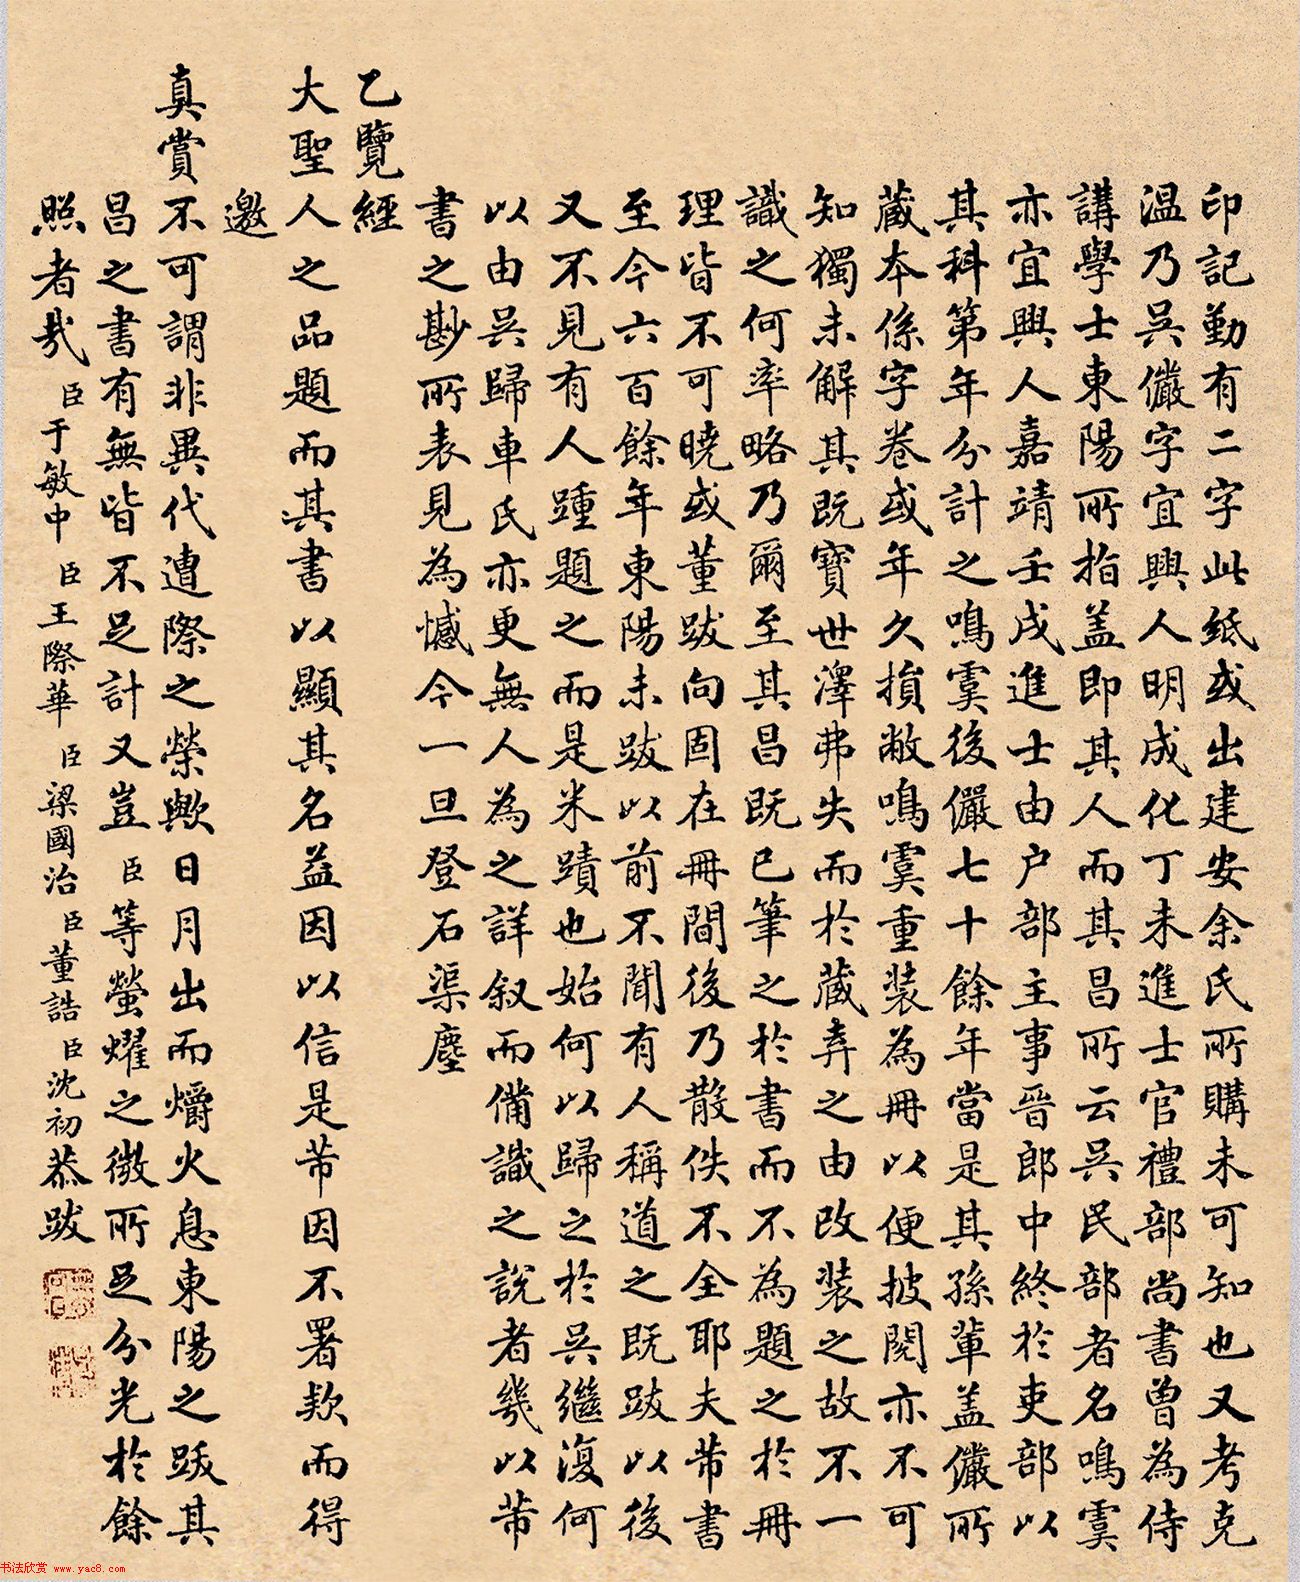 印記勤有二字此紙或出建安余氏所購未可知也又考克
温乃吳儼字宜興人明成化丁未進士官禮部尚書曾為侍
講學士東陽所指盖即其人而其昌所云吳民部者名鳴虞
亦宜興人嘉靖壬戌進士由户部主事晉郎中終於吏部以
其科第年分計之鳴虞後儼七十餘年當是其孫輩盖儼所
藏本係字卷或年久損敝鳴虞重裝為冊以便披閱亦不可
知獨未解其既寶世澤弗失而於藏弆之由改裝之故不一
識之何率略乃爾至其昌既已筆之於書而不為題之於冊
理皆不可曉或董跋向固在冊間後乃散佚不全耶夫芾書
至今六百餘年東陽未跋以前不聞有人稱道之既跋以後
又不見有人踵題之而是米蹟也始何以歸之於吳繼復何
以由吳歸車氏亦更無人為之詳叙而備識之說者幾以芾
書之尠所表見為憾今一旦登石渠塵
乙覽經
大聖人之品題而其書以顯其名益因以信是芾因不署款而得
邀
真賞不可謂非異代遭際之榮歟日月出而爝火息東陽之跋其
昌之書有無皆不足計又豈臣等螢燿之微所足分光於餘
照者哉臣于敏中臣王際華臣梁國治臣董誥臣沈初恭跋
书法欣赏 www.yac8.com